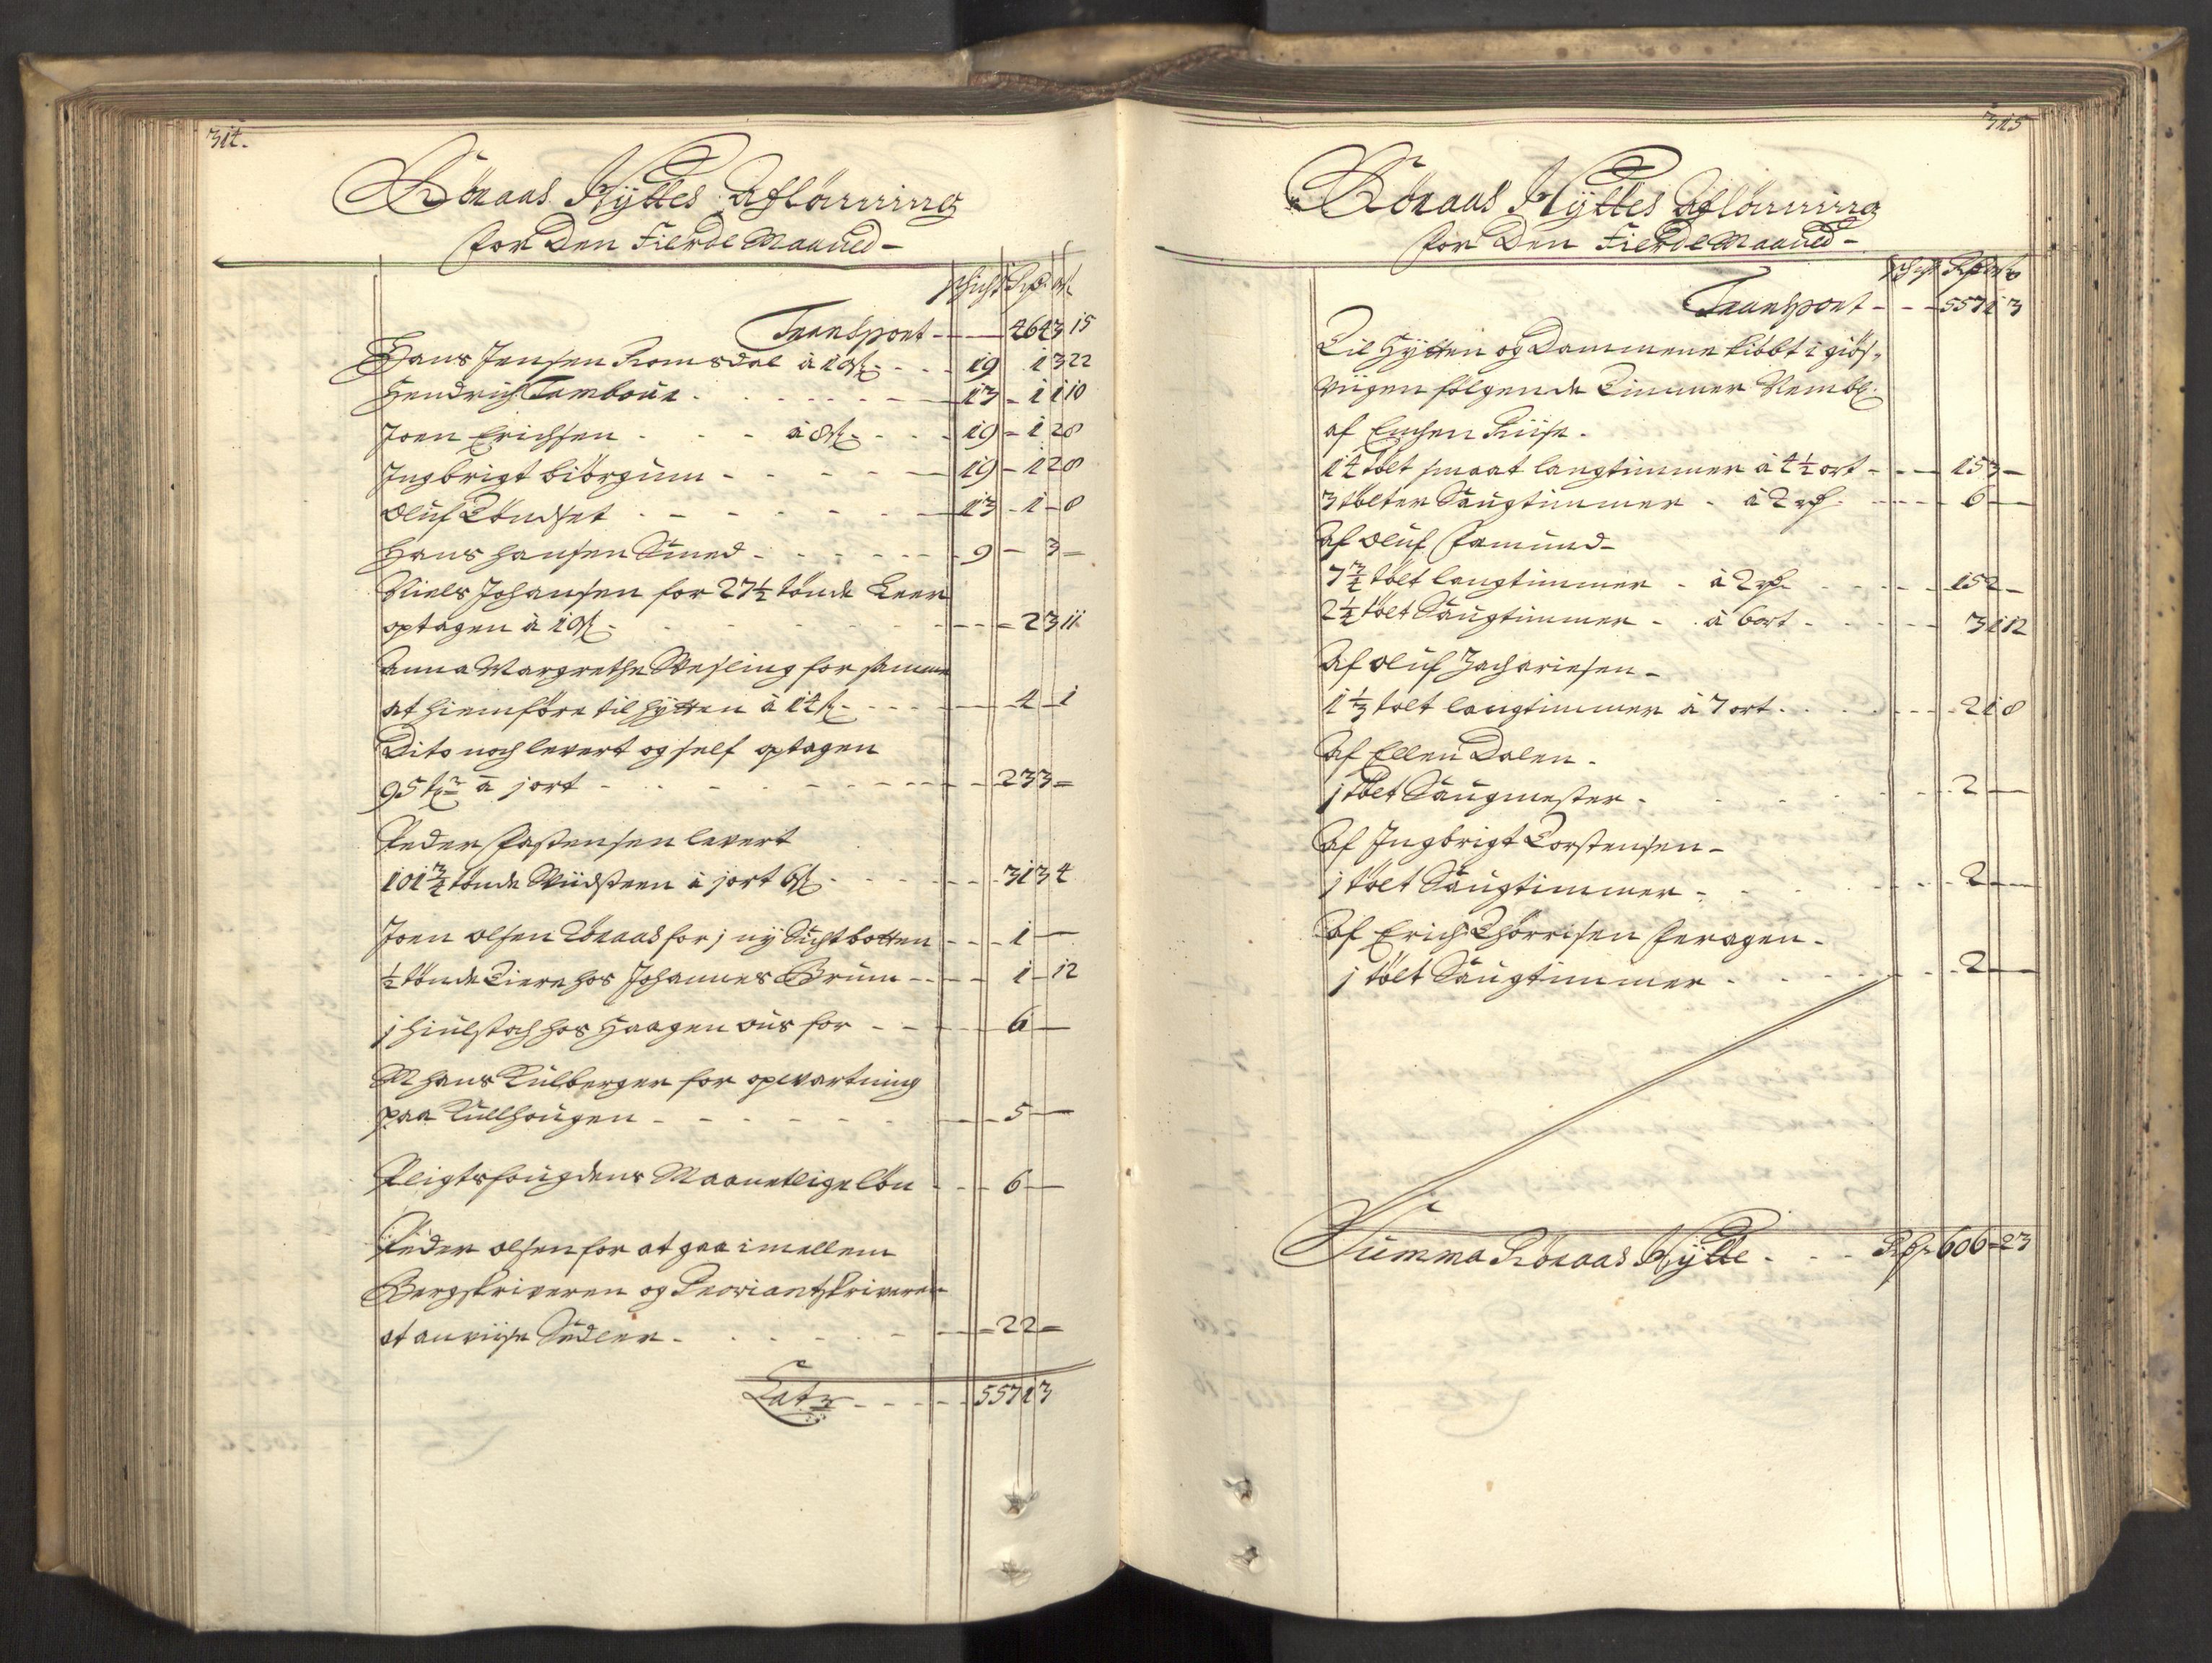 314.
Röraas Hyttes Aflönning
for Den Fierde Maaned -
schicht Rdr. ort ß
Transport - - 464 3 15
Hans Jensen Romsdal à 10 ß - - 19 1 3 22
Hendrich Tambour - - 13 - 1 1 10
Joen Erichsen - - à 8 ß - - 19 - 1 2 8
Ingbrigt biörgum - - 19 - 1 2 8
Oluf Töndset - - 13 - 1 - 8
Hans Hansen Smed - - 9 - 3 -
Niels Johansen for 27½ tönde Leer
optagen à 10 ß - - 2 3 11
Anna Margrethe Wesling for samme
at hiemföre til hytten à 14 ß - - 4 - 1
Dito noch levert og self optagen
95 tr à j ort - - 23 3 -
Peder Pastensen levert
101¾ tönde Miidsteen à j ort 6 ß - - 31 3 4
Joen Olsen Röraas for j ny Suchtbotten - - 1 -
½ tönde Tiere hos Johannes Brun - - 1 - 12
j hiulstoch hos Haagen Aus for - - 6 -
M Hans Kulberger for opvartning
paa Kullhougen - - 5 -
Pligtsfougdens Maanetlige lön - - 6 -
Peder Olsen for at gaa imellem
Bergskriveren og Proviantskriveren
at anviise Sedler - - 2 2 -
Lat - - 557 1 3
315
Röraas Hyttes Aflönning
for Den Fierde Maaned -
schicht Rdr ort ß
Transport - - 557 1 3
Til Hytten og Dammene kiöbt i giös-
viigen fölgende Timmer Nembl:
af Enchen Riise.
14 tölt smaat langtimmer à 4½ ort - - 15 3 -
3 tölter Saugtimmer - à 2 rdr - - 6 -
Af Oluf Famund -
7¾ tölt langtimmer - à 2 rdr - - 15 2 -
2½ tölt Saugtimmer - à 6 ort - - 3 1 12
Af Oluf Zachariesen -
1⅓ tolt langtimmer à 7 ort - - 2 1 8
Af Ellen Dalen -
j tölt Saugmester - - 2 -
Af Ingbrigt Torstensen -
j tölt Saugtimmer - - 2 -
Af Erich Thörrisen Feragen -
j tölt Saugtimmer - - 2 -
Summa Röraas Hytte - - Rdr 606 - 23